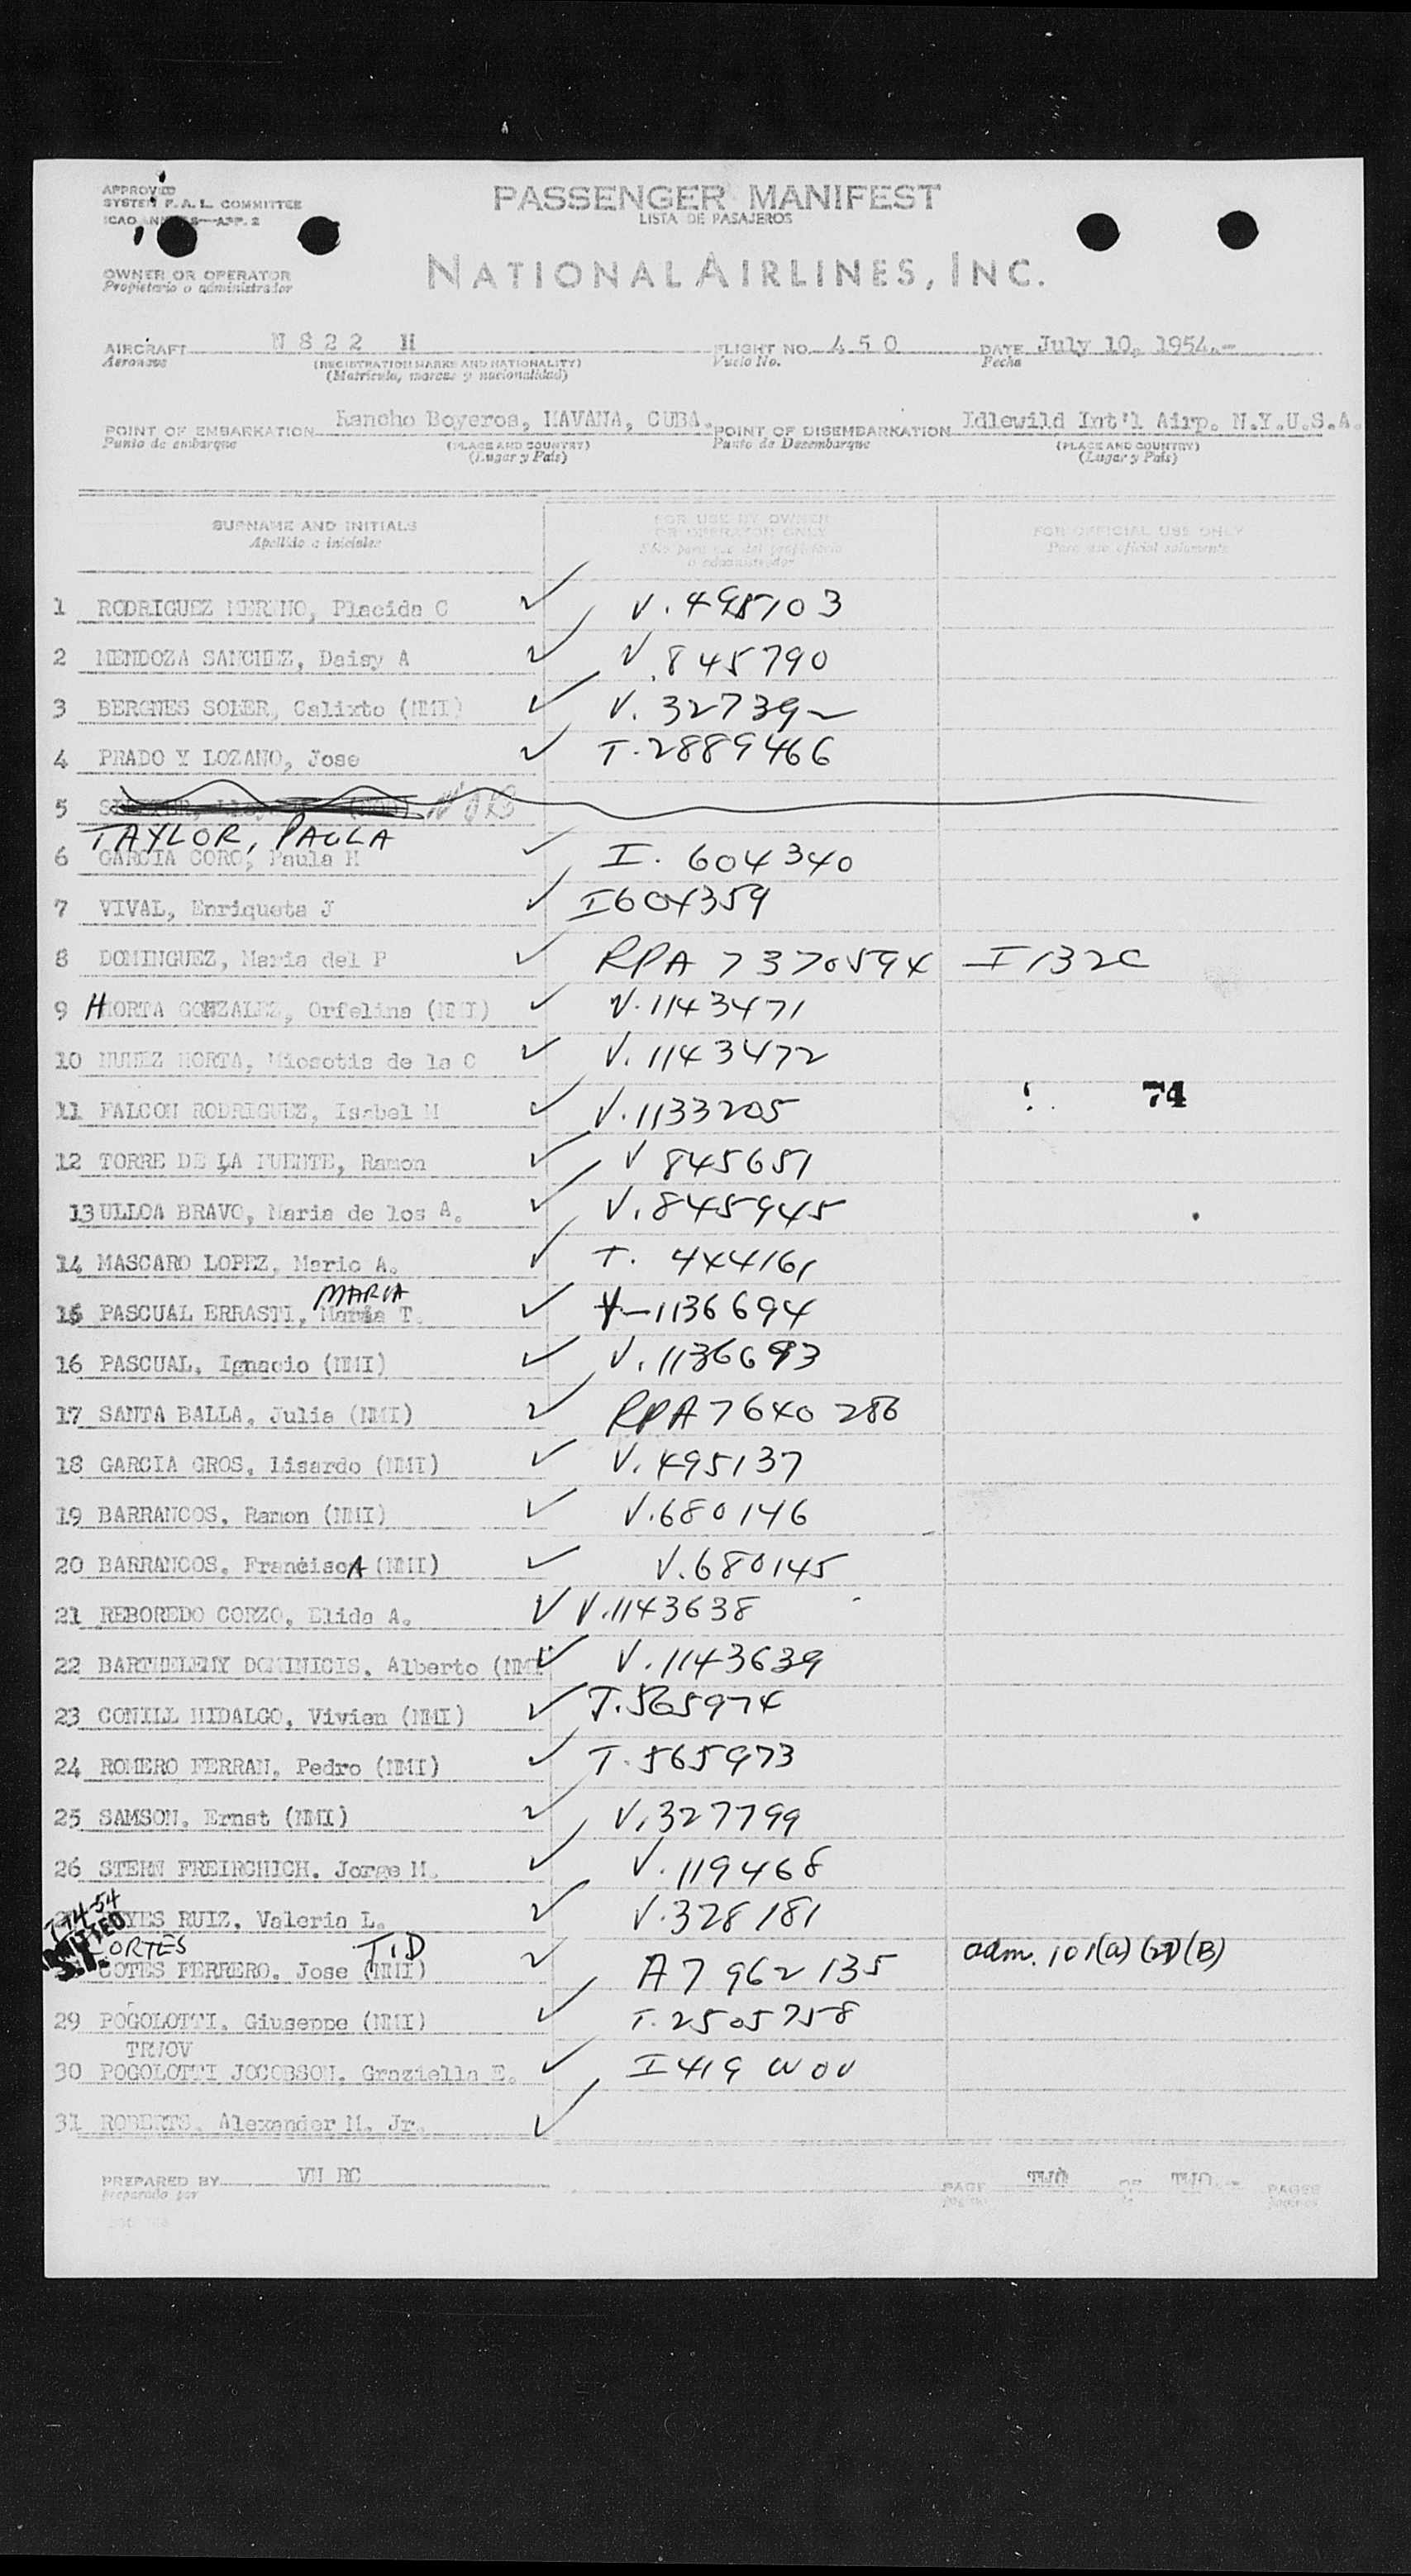 APPROVED
SYSTEM F. A. L. COMMITTEE
ICAO ANNEX 9—APP. 2
PASSENGER MANIFEST
LISTA DE PASAJEROS
OWNER OR OPERATOR
Propietario o administrador
NATIONAL AIRLINES, INC.
AIRCRAFT N 8 2 2 H FLIGHT NO. 4 5 0 DATE July 10, 1954.-
Aeronave (REGISTRATION MARKS AND NATIONALITY) Vuelo No. Fecha
(Matricula, marcas y nacionalidad)
POINT OF EMBARKATION Rancho Boyeros, HAVANA, CUBA. POINT OF DISEMBARKATION Idlewild Int'l Airp. N.Y.U.S.A.
Punto de embarque (PLACE AND COUNTRY) Punto de Desembarque (PLACE AND COUNTRY)
(Lugar y Pais) (Lugar y Pais)
SURNAME AND INITIALS FOR USE BY OWNER OR OPERATOR ONLY FOR OFFICIAL USE ONLY
Apellido e iniciales Para uso oficial solamente
1 RODRIGUEZ MERINO, Placida C V. 498703
2 MENDOZA SANCHEZ, Daisy A V. 845790
3 BERGNES SOLER, Calixto (NMI) V. 327392
4 PRADO Y LOZANO, Jose T. 2889466
5
TAYLOR, PAULA
6 GARCIA CORO, Paula H I. 604340
7 VIVAL, Enriqueta J I 604359
8 DOMINGUEZ, Maria del P RPA 7370594 I 132C
9 HORTA GONZALEZ, Orfelina (NMI) V. 1143471
10 NUNEZ HORTA, Miosotis de la C V. 1143472
11 FALCON RODRIGUEZ, Isabel M V. 1133205 74
12 TORRE DE LA FUENTE, Ramon V 845651
13 ULLOA BRAVO, Maria de los A. V. 845945
14 MASCARO LOPEZ, Mario A. T. 444161
MARIA
15 PASCUAL ERRASTI, Maria T. V-1136694
16 PASCUAL, Ignacio (NMI) V. 1136693
17 SANTA BALLA, Julia (NMI) RPA 7640286
18 GARCIA GROS, Lisardo (NMI) V. 495137
19 BARRANCOS, Ramon (NMI) V. 680146
20 BARRANCOS, FranciscA (NMI) V. 680145
21 REBOREDO CORZO, Elida A. V. 1143638
22 BARTHELEMY DOMINICIS, Alberto (NMI V. 1143639
23 CONILL HIDALGO, Vivian (NMI) T. 565974
24 ROMERO FERRAN, Pedro (NMI) T. 565973
25 SAMSON, Ernst (NMI) V. 327799
26 STERN FREIRCHICH, Jorge M. V. 119468
7-14-54
YES RUIZ, Valeria L. V. 328181
ADMITTED
CORTES T.D
S.I. COTES FERRERO, Jose (NMI) A7 962 135 adm. 101(a)(27)(B)
29 POGOLOTTI, Giuseppe (NMI) T. 2505758
TRJOV
30 POGOLOTTI JOCOBSON, Graziella E. I 419 W OV
31 ROBERTS, Alexander M. Jr.
PREPARED BY VH RC PAGE TWO OF TWO.- PAGES
preparado por